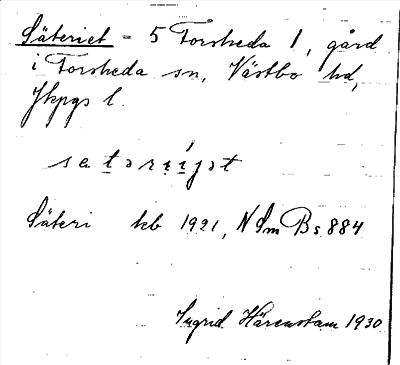 Säteriet = 5 Forsheda 1, gård
i Forsheda sn, Västbo hd,
Jkpgs l.
satərı̣íjət
Säteri kb 1921, N Sm Bs 884
Ingrid Härenstam 1930